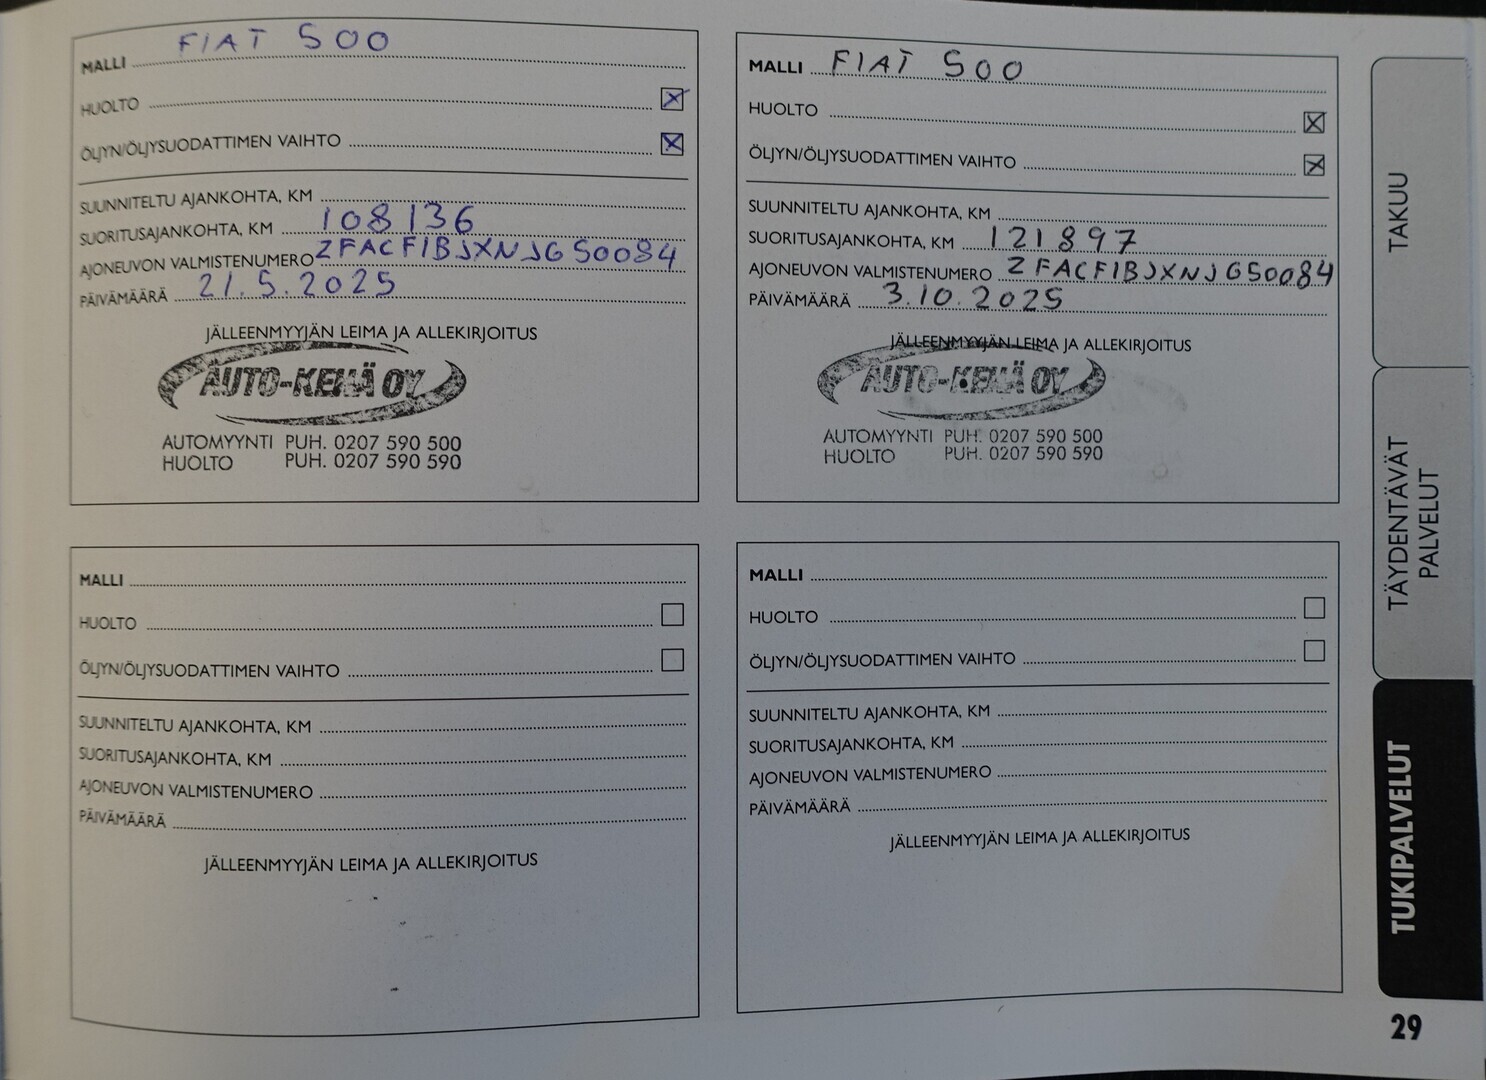 MALLI FIAT 500
HUOLTO
ÖLJYN/ÖLJYSUODATTIMEN VAIHTO
SUUNNITELTU AJANKOHTA, KM
SUORITUSAJANKOHTA, KM 108136
AJONEUVON VALMISTENUMERO ZFACF1BJXNJG50084
PÄIVÄMÄÄRÄ 21.5.2025
JÄLLEENMYYJÄN LEIMA JA ALLEKIRJOITUS
AUTO-KEHÄ OY
AUTOMYYNTI PUH. 0207 590 500
HUOLTO PUH. 0207 590 590
MALLI FIAT 500
HUOLTO
ÖLJYN/ÖLJYSUODATTIMEN VAIHTO
SUUNNITELTU AJANKOHTA, KM
SUORITUSAJANKOHTA, KM 121897
AJONEUVON VALMISTENUMERO ZFACF1BJXNJG50084
PÄIVÄMÄÄRÄ 3.10.2025
JÄLLEENMYYJÄN LEIMA JA ALLEKIRJOITUS
AUTO-KEHÄ OY
AUTOMYYNTI PUH. 0207 590 500
HUOLTO PUH. 0207 590 590
MALLI
HUOLTO
ÖLJYN/ÖLJYSUODATTIMEN VAIHTO
SUUNNITELTU AJANKOHTA, KM
SUORITUSAJANKOHTA, KM
AJONEUVON VALMISTENUMERO
PÄIVÄMÄÄRÄ
JÄLLEENMYYJÄN LEIMA JA ALLEKIRJOITUS
MALLI
HUOLTO
ÖLJYN/ÖLJYSUODATTIMEN VAIHTO
SUUNNITELTU AJANKOHTA, KM
SUORITUSAJANKOHTA, KM
AJONEUVON VALMISTENUMERO
PÄIVÄMÄÄRÄ
JÄLLEENMYYJÄN LEIMA JA ALLEKIRJOITUS
TAKUU
TÄYDENTÄVÄT
PALVELUT
TUKIPALVELUT
29